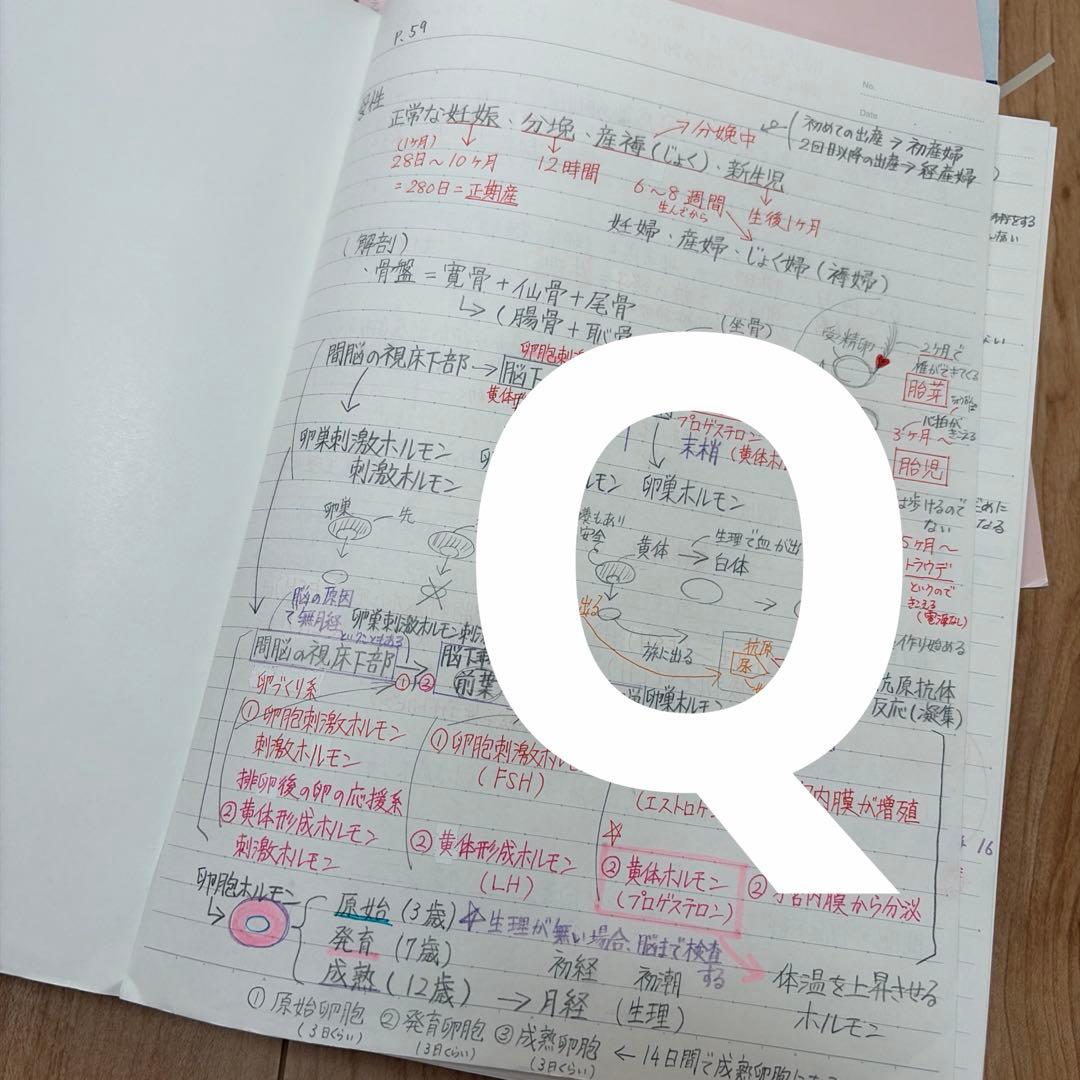 P.59
No.
Date
母性
正常な妊娠、分娩、産褥(じょく)、新生児
→分娩中
初めての出産→初産婦
2回目以降の出産→経産婦
(1ヶ月)
28日〜10ヶ月
=280日=正期産
12時間
6〜8週間
生んでから
生後1ヶ月
妊婦、産婦、じょく婦(褥婦)
(解剖)
、骨盤=寛骨+仙骨+尾骨
→(腸骨+恥骨
(坐骨)
間脳の視床下部→脳下
卵胞刺激
黄体形
プロゲステロン
末梢(黄体ホル
受精卵
2ヶ月で
胎芽
心拍が
きこえる
3ヶ月〜
胎児
卵巣刺激ホルモン
刺激ホルモン
ルモン 卵巣ホルモン
は歩けるので
ない
5ヶ月〜
トラウデ
というので
きこえる
(電源なし)
卵巣
先
養もあり
安全
黄体→白体
生理で血が出
脳の原因
で無月経
ということもある
卵巣刺激ホルモン刺
出る
旅に出る
抗原
尿
作り始める
間脳の視床下部→脳下垂
①②
前葉
卵巣ホルモン
抗原抗体
反応(凝集)
卵づくり系
①卵胞刺激ホルモン
刺激ホルモン
排卵後の卵の応援系
②黄体形成ホルモン
刺激ホルモン
①卵胞刺激ホルモ
(FSH)
②黄体形成ホルモン
(LH)
(エストロゲ
宮内膜が増殖
②黄体ホルモン
(プロゲステロン)
②子宮内膜から分泌
16
卵胞ホルモン
原始(3歳)
発育(7歳)
成熟(12歳)→月経(生理)
☆生理が無い場合、脳まで検査
する
初経 初潮
体温を上昇させる
ホルモン
①原始卵胞 ②発育卵胞 ③成熟卵胞 ←14日間で成熟卵胞にな
(3日くらい) (3日くらい) (3日くらい)
Q